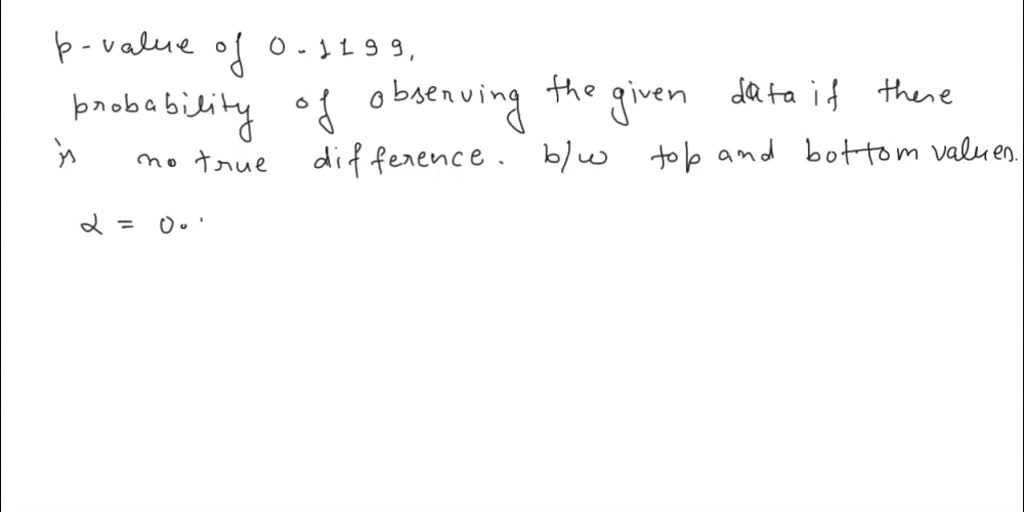 p-value of 0.1199,
probability of observing the given data if there
is no true difference. b/w top and bottom values.
α = 0.